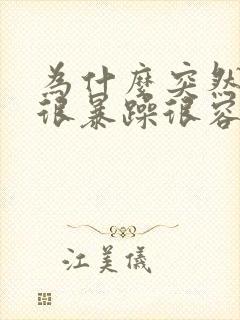 為什麼突然
很暴躁很容
江美儀